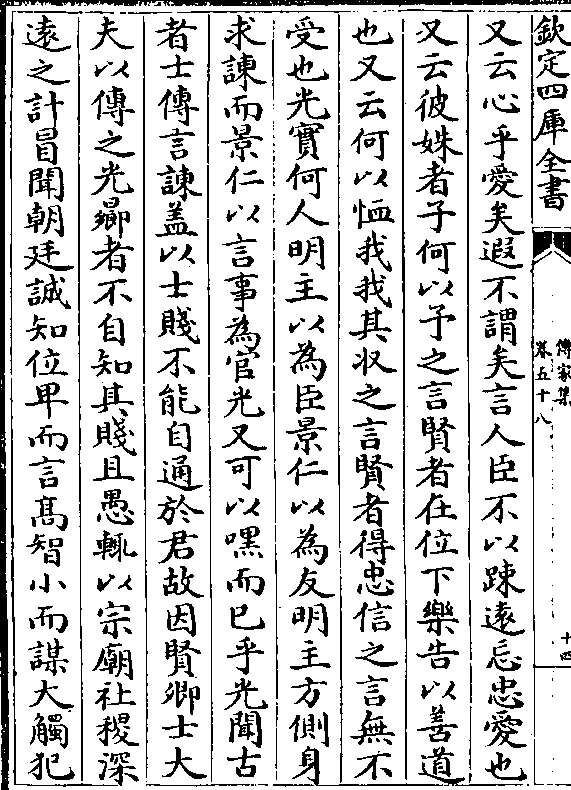 欽定四庫全書
傳家集
卷五十八
十四
又云心乎愛矣遐不謂矣言人臣不以踈遠忘忠愛也
又云彼姝者子何以予之言賢者在位下樂告以善道
也又云何以恤我我其收之言賢者得忠信之言無不
受也光實何人明主以為臣景仁以為友明主方側身
求諫而景仁以言事為官光又可以嘿而已乎光聞古
者士傳言諫盖以士賤不能自通於君故因賢卿士大
夫以傳之光鄉者不自知其賤且愚輒以宗廟社稷深
遠之計冒聞朝廷誠知位卑而言髙智小而謀大觸犯